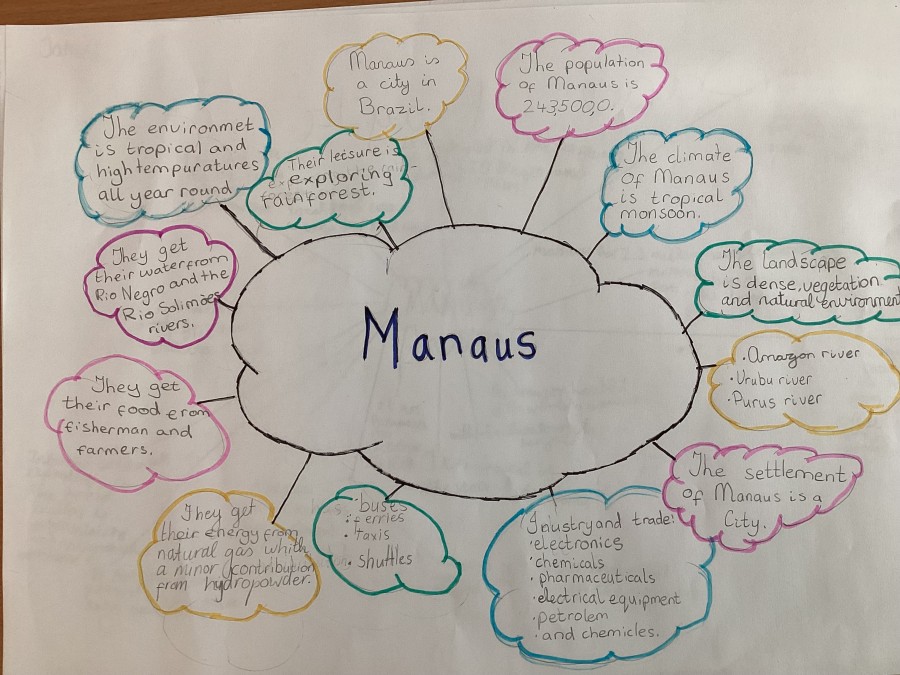 Manaus is
a city in
Brazil.
The population
of Manaus is
243,500,0.
The environmet
is tropical and
high tempuratures
all year round
Their leisure is
exploring
rainforest.
The climate
of Manaus
is tropical
monsoon.
They get
their water from
Rio Negro and the
Rio Solimões
rivers.
The landscape
is dense, vegetation
and natural environment
Manaus
.Amazon river
·Urubu river
·Purus river
They get
their food from
fisherman and
farmers.
The settlement
of Manaus is a
City.
They get
their energy from
natural gas whith
a minor contribution
from hydropowder.
·buses
·ferries
·taxis
·shuttles
Inustry and trade:
·electronics
·chemicals
·pharmaceuticals
·electrical equipment
·petrolem
·and chemicles.